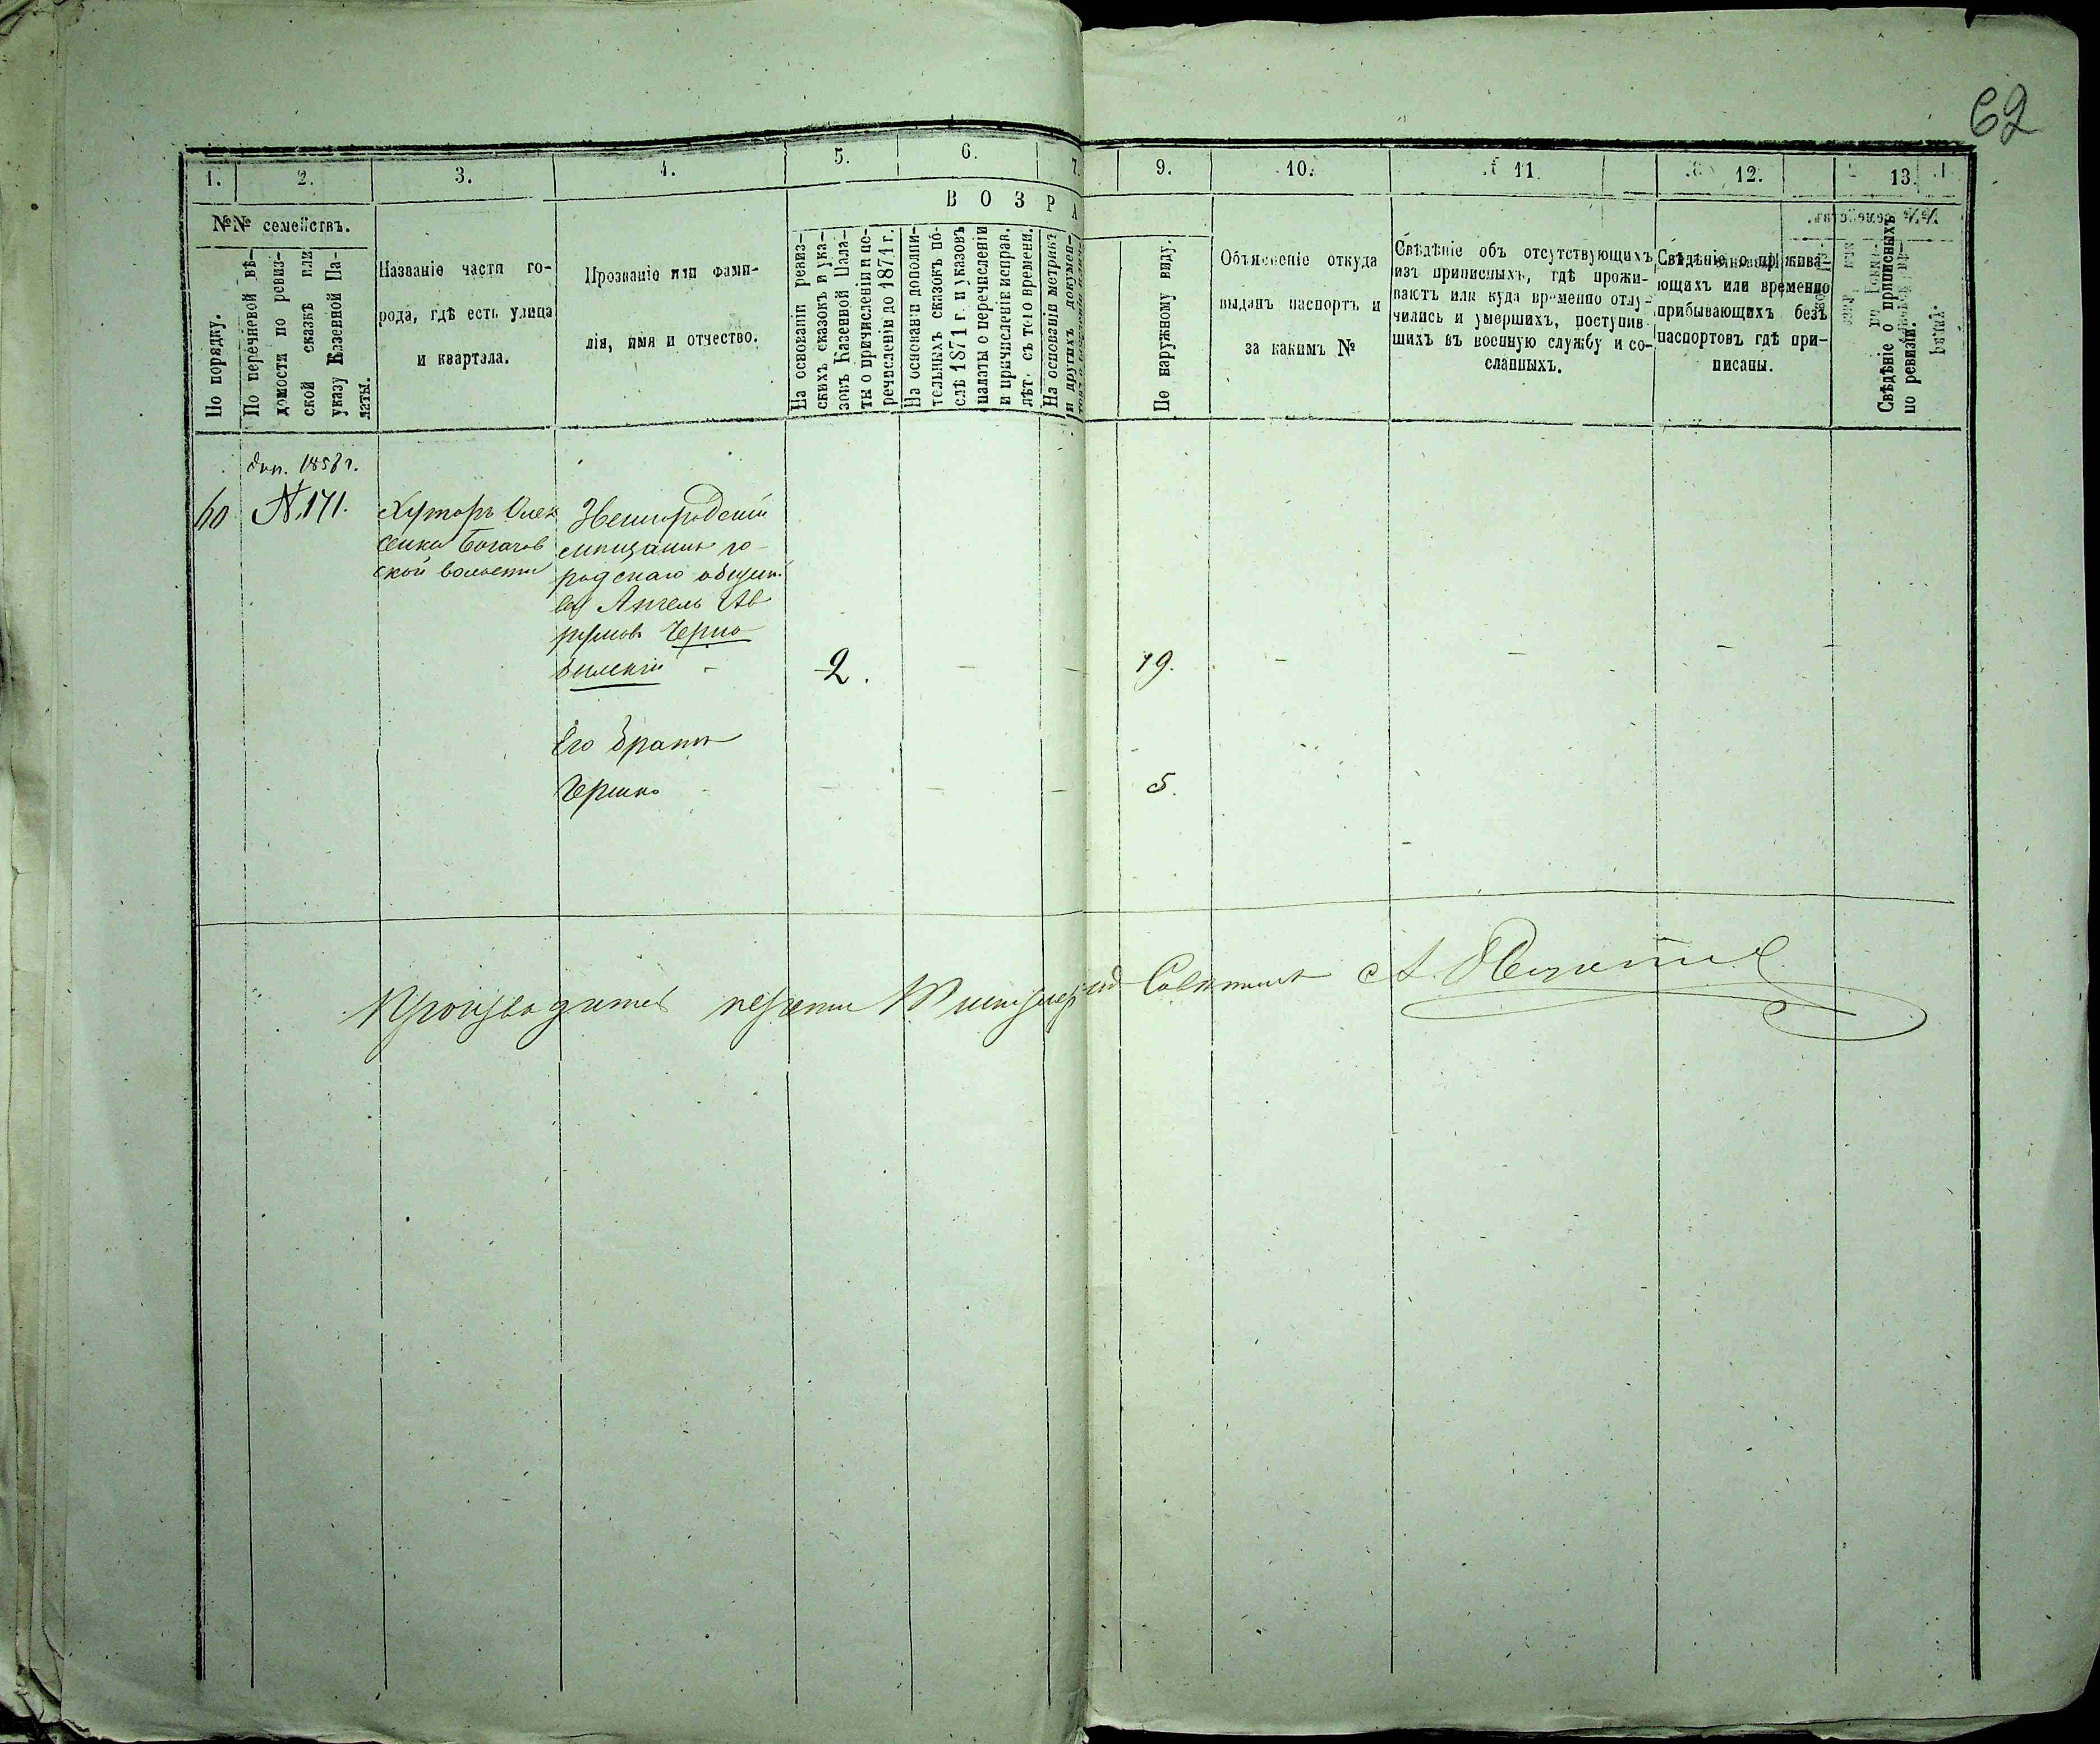 62
1. 2. 3. 4. 5. 6. 7. 9. 10. 11 12. 13.
№№ семействъ.
По порядку.
По перечневой вѣ-
домости по ревиз-
ской сказкѣ или
указу Казенной Па-
латы.
Названіе части го-
рода, гдѣ есть улица
и квартала.
Прозваніе или фами-
лія, имя и отчество.
В О З Р А
На основаніи ревиз-
скихъ сказокъ и ука-
зовъ Казенной Пала-
ты о причисленіи и пе-
речисленіи до 1871 г.
На основаніи дополни-
тельныхъ сказокъ по-
слѣ 1871 г. и указовъ
палаты о перечисленіи
и причисленіе исправ.
лѣт. съ того времени.
На основаніи метрикъ
и другихъ докумен-
По наружному виду.
Объясненіе откуда
выданъ паспортъ и
за какимъ №
Свѣдѣніе объ отсутствующихъ
изъ приписныхъ, гдѣ прожи-
ваютъ или куда временно отлу-
чились и умершихъ, поступив-
шихъ въ военную службу и со-
сланныхъ.
Свѣдѣніе о прожива-
ющихъ или временно
прибывающихъ безъ
паспортовъ гдѣ при-
писаны.
Свѣдѣніе о приписныхъ
по ревизіи.
доп. 1858 г.
60 №171.
Хуторъ Олек
сенка Богачов
ской волости
Звенигородскій
мѣщанинъ го-
родскаго общест.
ва Анчель Ав
румовъ Черно-
быльскій - 2. - - 19. - - - -
Его братъ
Гершко - - - - 5.
Производитель переписи Титулярный Совѣтникъ А.